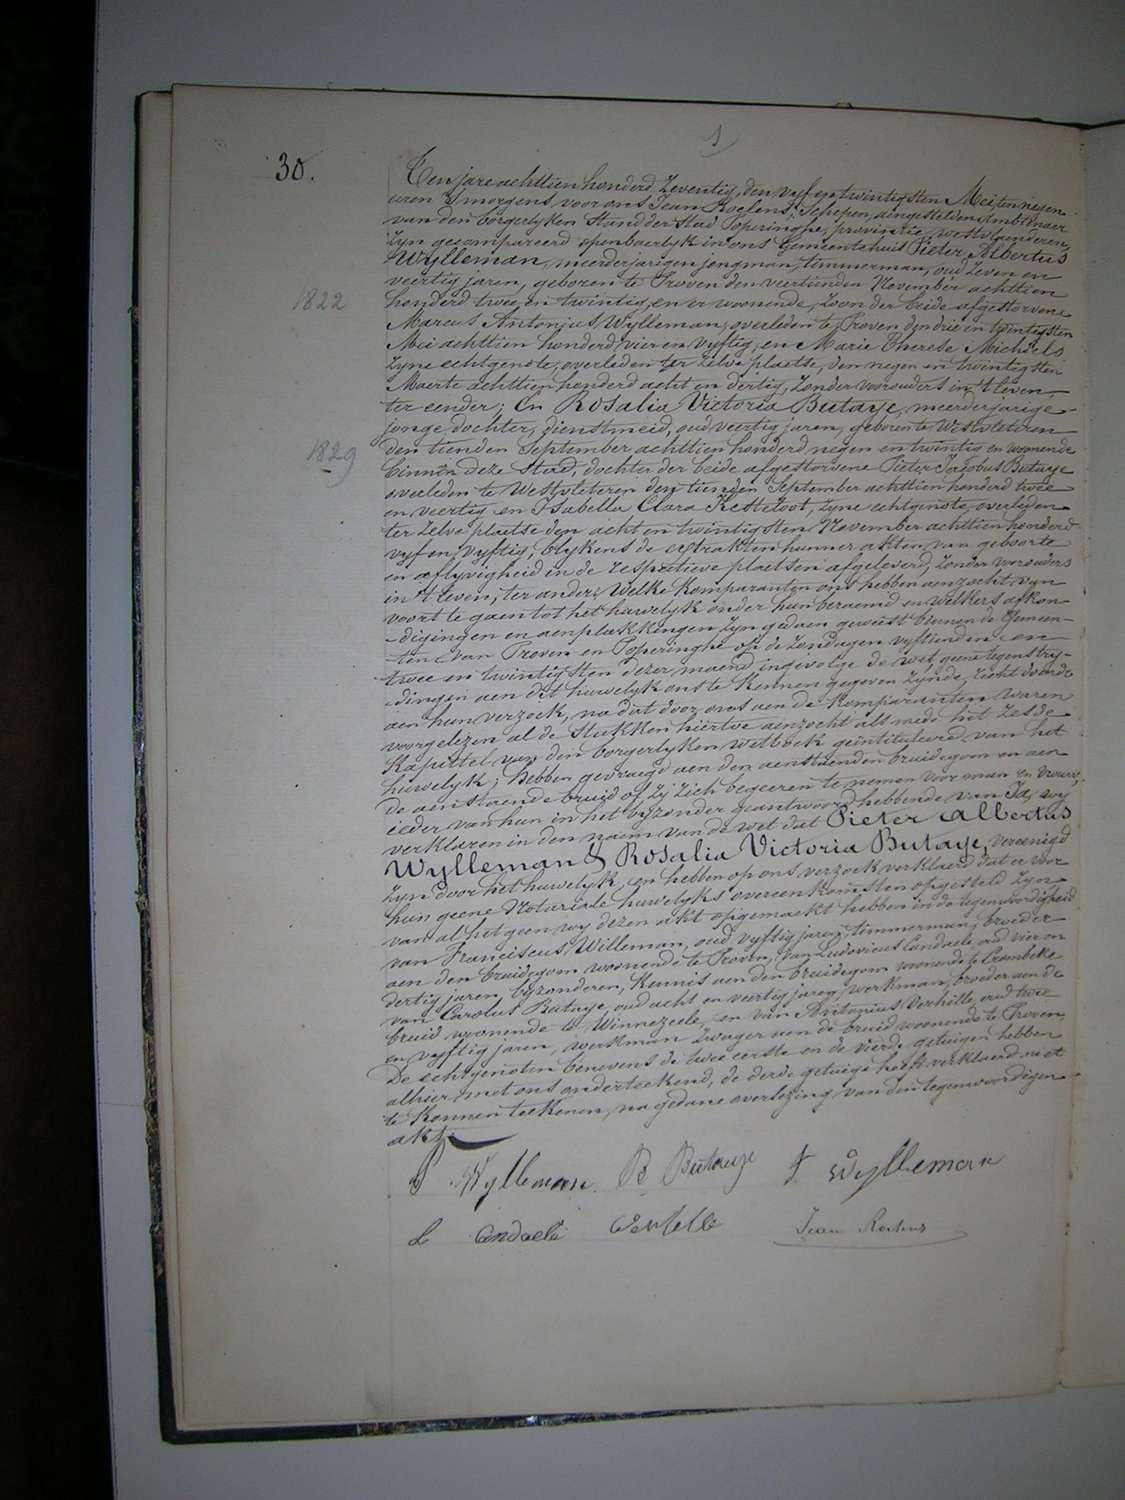 1
30.
Ten jare achttien honderd Zeventig, den vyf en twintigsten Mei ten negen
uren 's morgens voor ons Jean Roelens, Schepen, aengestelden Ambtenaer
van den borgerlyken Stand der Stad Poperinghe, provintie westvlaenderen
zyn gecompareerd openbaerlyk in ons Gemeentehuis Pieter Albertus
Wylleman, meerderjarigen jongman, timmerman, oud zeven en
veertig jaren, geboren te Proven den veertienden November achttien
1822
honderd twee en twintig, en er woonende, zoon der beide afgestorvene
Marcus Antonius Wylleman, overleden te Proven den drie en twintigsten
Mei achttien honderd vier en vyftig, en Marie Therese Michiels
zyne echtgenote, overleden ter zelve plaetse, den negen en twintigsten
Maerte achttien honderd acht en dertig, zonder voorouders in 't leven,
ter eender; En Rosalia Victoria Butaye, meerderjarige
jonge dochter, dienstmeid, oud veertig jaren, geboren te Westvleteren
1829
den tienden September achttien honderd negen en twintig en woonende
binnen deze Stad, dochter der beide afgestorvene Pieter Jacobus Butaye
overleden te Westvleteren den tienden September achttien honderd twee
en veertig en Isabella Clara Ketteloot, zyne echtgenote, overleden
ter zelve plaetse den acht en twintigsten November achttien honderd
vyf en vyftig, blykens de extrakten hunner akten van geboorte
en aflyvigheid in de respetieve plaetsen afgeleverd, zonder voorouders
in 't leven, ter ander; Welke komparanten ons hebben aenzocht van
voort te gaen tot het huwelyk onder hun beraemd en welkers afkon-
-digingen en aenplakkingen zyn gedaen geweest binnen de Gemeen-
-ten van Proven en Poperinghe op de zondagen vyftienden en
twee en twintigsten dezer maend ingevolge de wet, geene tegenstry-
-dingen aen dit huwelyk ons te kennen gegeven zynde, recht doende
aen hun verzoek, na dat door ons aen de komparanten waren
voorgelezen al de stukken hiertoe aenzocht als mede het zesde
Kapittel van den borgerlyken wetboek geïntituleerd van het
huwelyk; hebben gevraegd aen den aenstaenden bruidegom en aen
de aenstaende bruid of zy zich begeeren te nemen voor man en vrouw;
ieder van hun in het byzonder geantwoord hebbende van Ja, wy
verklaren in den naem van de wet dat Pieter Albertus
Wylleman & Rosalia Victoria Butaye, vereenigd
zyn door het huwelyk, en hebben op ons verzoek verklaerd dat er voor
hun geene Notariale huwelyks overeenkomsten opgesteld zyn
van al het geen wy dezen akt opgemaekt hebben in de tegenwoordigheid
van Franciscus Willeman, oud vyftig jaren, timmerman, broeder
aen den bruidegom woonende te Proven, van Ludovicus Candaele, oud vier en
dertig jaren, byzonderen, kennis aen den bruidegom woonende te Crombeke
van Carolus Butaye, oud acht en veertig jaren, werkman, broeder aen de
bruid woonende te Winnezeele, en van Antonius Verhille, oud twee
en vyftig jaren, werkman zwager aen de bruid woonende te Proven,
De echtgenoten benevens de twee eerste en de vierde getuigen hebben
alhier met ons onderteekend, de derde getuige heeft verklaerd niet
te konnen teekenen, na gedane overlezing van den tegenwoordigen
akt.
P Wylleman. R Butaye F Wylleman
L Candaele Verhille Jean Roelens